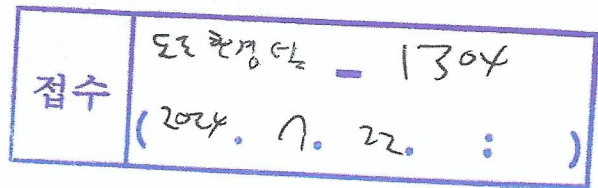 접수
도로환경 - 1304
(2024. 7. 22. : )